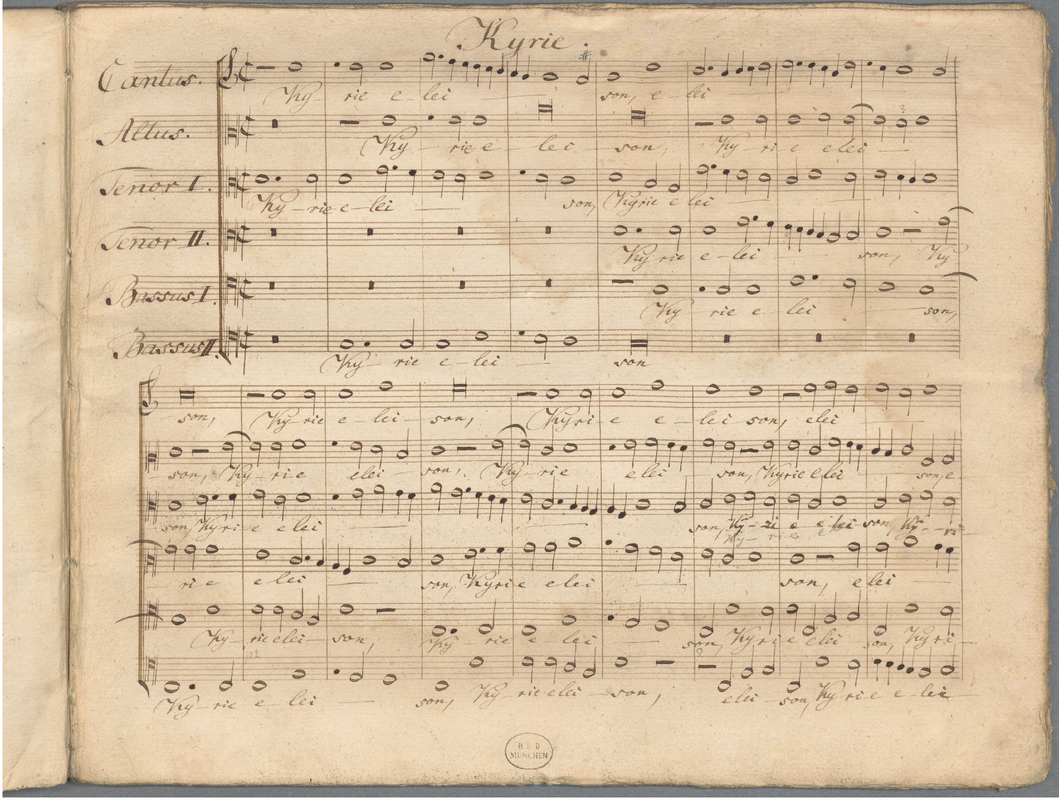 Kyrie.
Cantus.
Ky - rie e - lei - son, e - lei
Altus.
Ky - rie e - lei - son, Ky - ri - e elei -
Tenor I.
Ky - rie e - lei - son, Kyrie e lei
Tenor II.
Ky rie e - lei - son, Ky
Bassus I.
Ky - rie e lei - son,
Bassus II.
Ky - rie e - lei - son
son, Ky - rie e - lei - son, Kyri - e e - lei son, elei -
son, Ky - ri e elei - son, Ky - rie elei son, Kyrie elei - son, e
son, Kyri - e e lei - son, Ky - ri e e - lei son, Ky - ri -
ri e e lei - son, Kyri e elei - son, e lei
Ky - rie elei - son, Ky - rie e - lei - son, Kyri e elei - son, Kyri
Ky - rie e - lei - son, Ky - rie elei - son, elei - son, Kyri e e - lei
B S B
MÜNCHEN